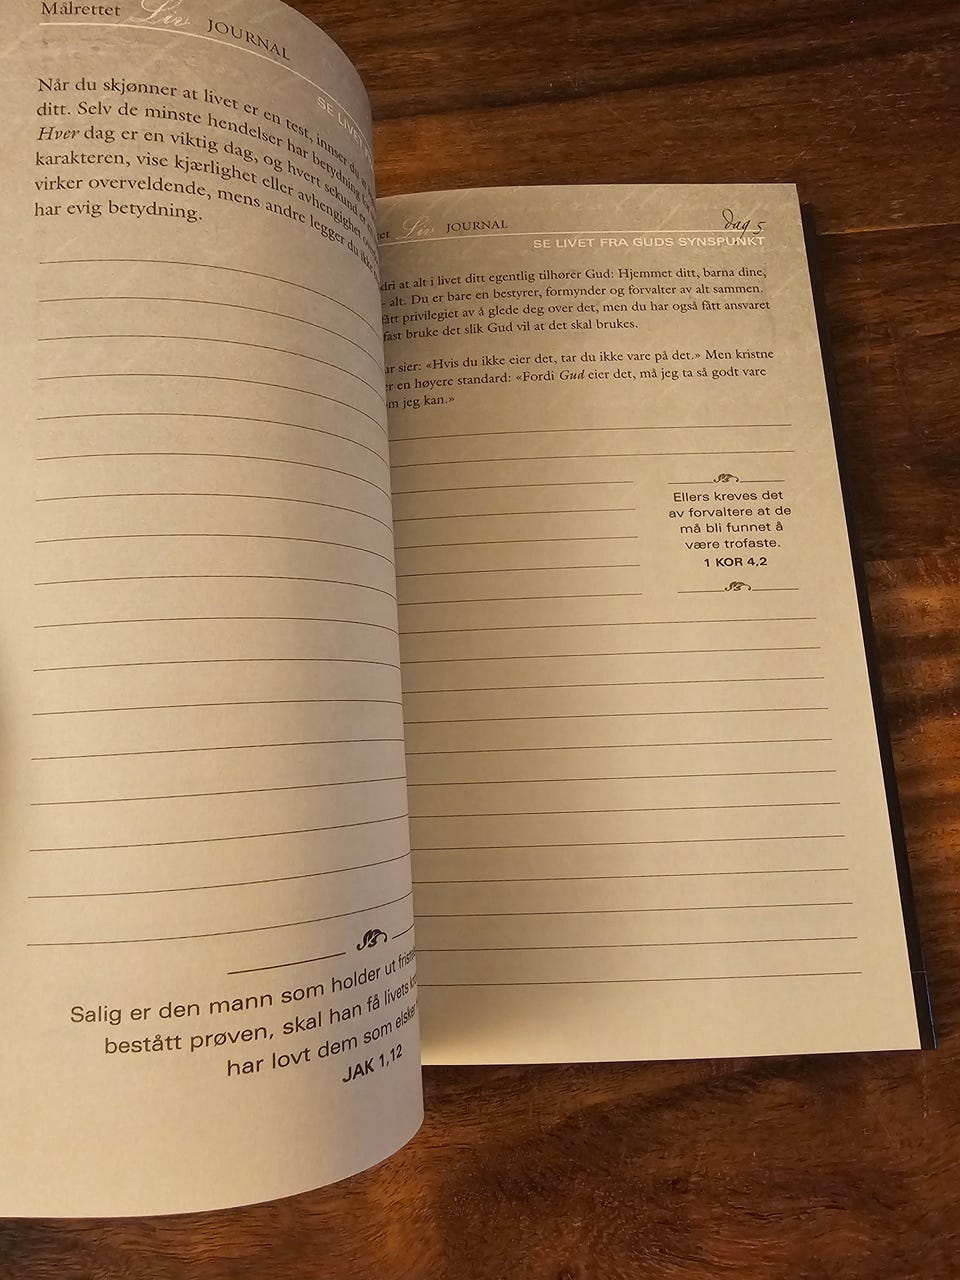 Målrettet Liv JOURNAL
SE LIVET
Når du skjønner at livet er en test, innser du at
ditt. Selv de minste hendelser har betydning for
Hver dag er en viktig dag, og hvert sekund er
karakteren, vise kjærlighet eller avhengighet
virker overveldende, mens andre legger du ikke
har evig betydning.
Salig er den mann som holder ut
bestått prøven, skal han få livets
har lovt dem som elsker
JAK 1,12
Liv JOURNAL
dag 5
SE LIVET FRA GUDS SYNSPUNKT
at alt i livet ditt egentlig tilhører Gud: Hjemmet ditt, barna dine,
– alt. Du er bare en bestyrer, formynder og forvalter av alt sammen.
fått privilegiet av å glede deg over det, men du har også fått ansvaret
bruke det slik Gud vil at det skal brukes.
sier: «Hvis du ikke eier det, tar du ikke vare på det.» Men kristne
en høyere standard: «Fordi Gud eier det, må jeg ta så godt vare
jeg kan.»
Ellers kreves det
av forvaltere at de
må bli funnet å
være trofaste.
1 KOR 4,2